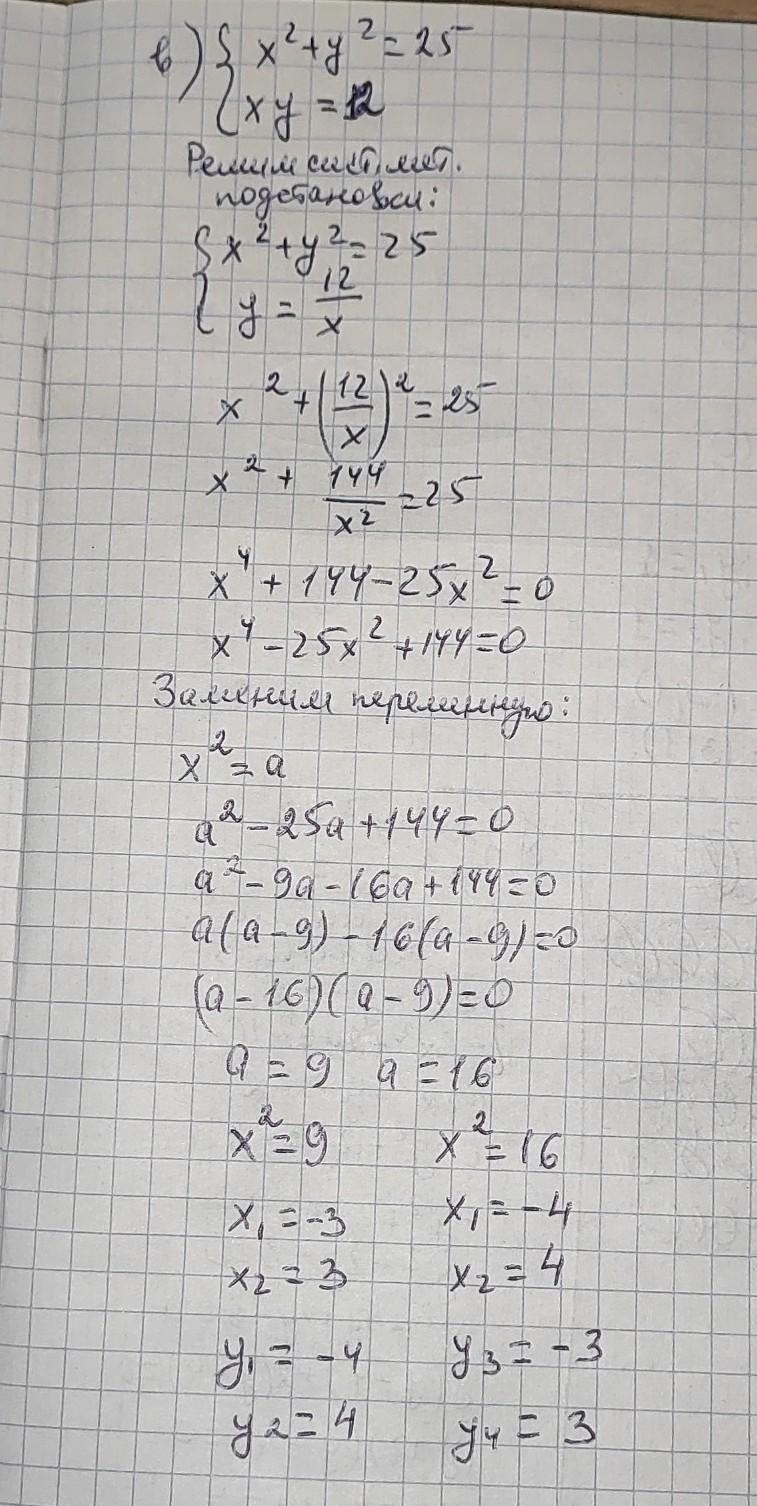 в) { x² + y² = 25
{ xy = 12
Решим сист. мет.
подстановки:
{ x² + y² = 25
{ y = 12/x
x² + (12/x)² = 25
x² + 144/x² = 25
x⁴ + 144 - 25x² = 0
x⁴ - 25x² + 144 = 0
Заменим переменную:
x² = a
a² - 25a + 144 = 0
a² - 9a - 16a + 144 = 0
a(a - 9) - 16(a - 9) = 0
(a - 16)(a - 9) = 0
a = 9 a = 16
x² = 9 x² = 16
x₁ = -3 x₁ = -4
x₂ = 3 x₂ = 4
y₁ = -4 y₃ = -3
y₂ = 4 y₄ = 3